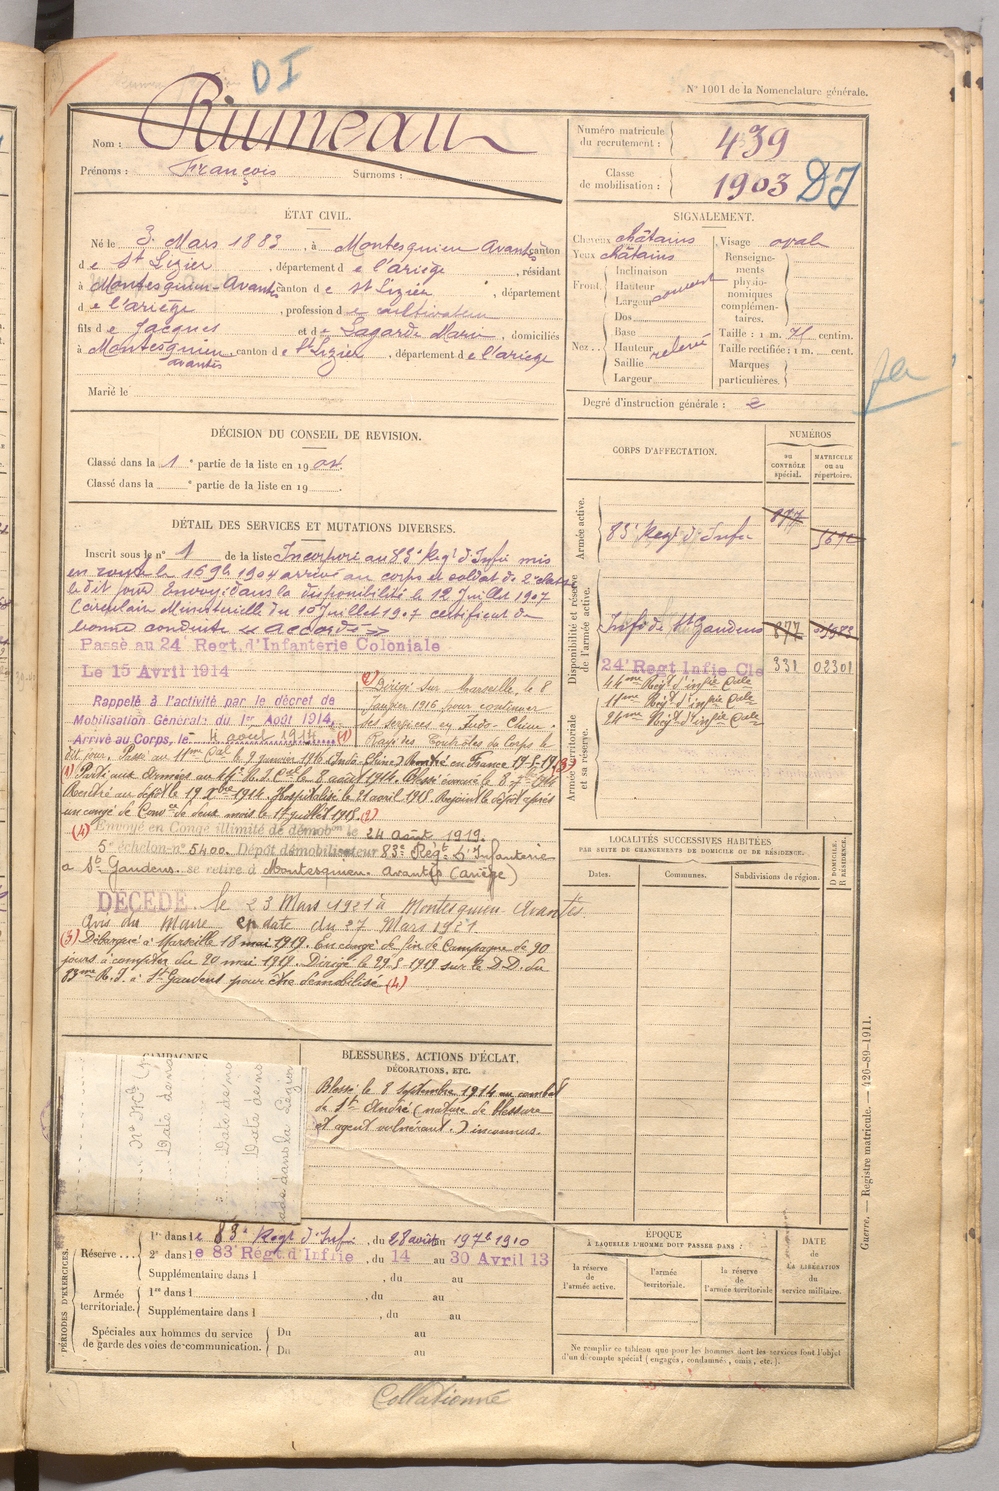 DI
N° 1001 de la Nomenclature générale.
Nom : Rumeau
Prénoms : François Surnoms :
Numéro matricule du recrutement : 439
Classe de mobilisation : 1903 DI
ÉTAT CIVIL.
Né le 3 Mars 1883, à Montesquieu Avantès canton
de St Lizier, département de l'ariège, résidant
à Montesquieu-Avantès canton de St Lizier, département
de l'ariège, profession de cultivateur
fils de Jacques et de Lagarde Marie, domiciliés
à Montesquieu avantès, canton de St Lizier, département de l'ariege
Marié le
SIGNALEMENT.
Cheveux châtains
Yeux châtains
Front. Inclinaison
Hauteur
Largeur
Nez... Dos
Base
Hauteur relevé
Saillie
Largeur
Visage ovale
Renseignements physionomiques complémentaires.
Taille : 1 m. 75 centim.
Taille rectifiée : 1 m. cent.
Marques particulières.
Degré d'instruction générale : 2
DÉCISION DU CONSEIL DE REVISION.
Classé dans la 1e partie de la liste en 1904.
Classé dans la e partie de la liste en 19
CORPS D'AFFECTATION.
NUMÉROS
au CONTRÔLE spécial.
MATRICULE ou au répertoire.
Armée active.
83e Regt d'Infie 877
Disponibilité et réserve de l'armée active.
Infie de St Gaudens 877
24e Regt Infie Cle 331 02301
44me Regt d'infie Cale
11me Regt d'infie Cale
24me Regt d'infie Cale
Armée territoriale et sa réserve.
DÉTAIL DES SERVICES ET MUTATIONS DIVERSES.
Inscrit sous le n° 1 de la liste Incorporé au 83e Regt d'Infie mis
en route le 16 9bre 1904 arrivé au corps et soldat de 2e classe
le dit jour Envoyé dans la disponibilité le 12 Juillet 1907
Circulaire Ministerielle du 10 Juillet 1907 certificat de
bonne conduite « accordé »
Passé au 24e Regt d'Infanterie Coloniale
Le 15 Avril 1914
Rappelé à l'activité par le décret de
Mobilisation Générale du 1er Août 1914.
Arrivé au Corps, le 4 aout 1914 (1)
(2) Dirigé sur Marseille, le 8
janvier 1916 pour continuer
ses services en Indo-Chine.
Rayé des contrôles du Corps le
dit jour. Passé au 11me Cal le 9 janvier 1916 (Indo-Chine) Rentré en France 17-5-19 (3)
(1) Parti aux Armées au 44e R.I. Cal le 8 août 1914. Blessé évacué le 8 7bre 1914
Rentré au dépôt le 19 Xbre 1914. Hospitalisé le 21 avril 1915. Rejoint le dépôt après
un congé de Convce de deux mois le 17 juillet 1915. (2)
(4) Envoyé en Congé illimité de démobon le 24 août 1919.
5e échelon n° 5400. Dépôt démobilisateur 83e Regt d'Infanterie
a St Gaudens. se retire à Montesquieu Avantès (Ariège)
DÉCÉDÉ le 23 Mars 1921 à Montesquieu-Avantès.
Avis du Maire en date du 27 Mars 1921.
(3) Débarqué à Marseille 18 mai 1919. En congé de fin de Campagne de 90
jours à compter du 20 mai 1919. Dirigé le 29-5-1919 sur le D.D. du
83me R.I. à St Gaudens pour être démobilisé (4)
LOCALITÉS SUCCESSIVES HABITÉES
PAR SUITE DE CHANGEMENTS DE DOMICILE OU DE RÉSIDENCE.
Dates. Communes. Subdivisions de région. D DOMICILE. R RÉSIDENCE.
CAMPAGNES
BLESSURES, ACTIONS D'ÉCLAT,
DÉCORATIONS, ETC.
Blessé le 8 Septembre 1914 au combat
de St André (nature de blessure
et agent vulnérant) inconnus.
PÉRIODES D'EXERCICES.
Réserve... 1re dans le 83e Regt d'Inf., du 28 août au 19 7bre 1910
2e dans le 83 Régt d'Infrie, du 14 au 30 Avril 13
Supplémentaire dans l, du au
Armée territoriale. 1re dans l, du au
Supplémentaire dans l, du au
Spéciales aux hommes du service de garde des voies de communication. Du au
Du au
ÉPOQUE
À LAQUELLE L'HOMME DOIT PASSER DANS :
la réserve de l'armée active.
l'armée territoriale.
la réserve de l'armée territoriale
DATE de LA LIBÉRATION du service militaire.
Ne remplir ce tableau que pour les hommes dont les services font l'objet
d'un décompte spécial (engagés, condamnés, omis, etc.).
Guerre. — Registre matricule. — 426-89-1911.
Collationné